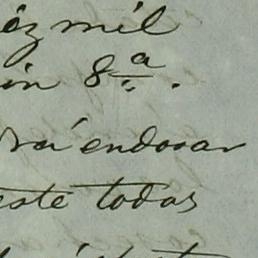 éz mil
in 8ª.
drá endosar
este todas